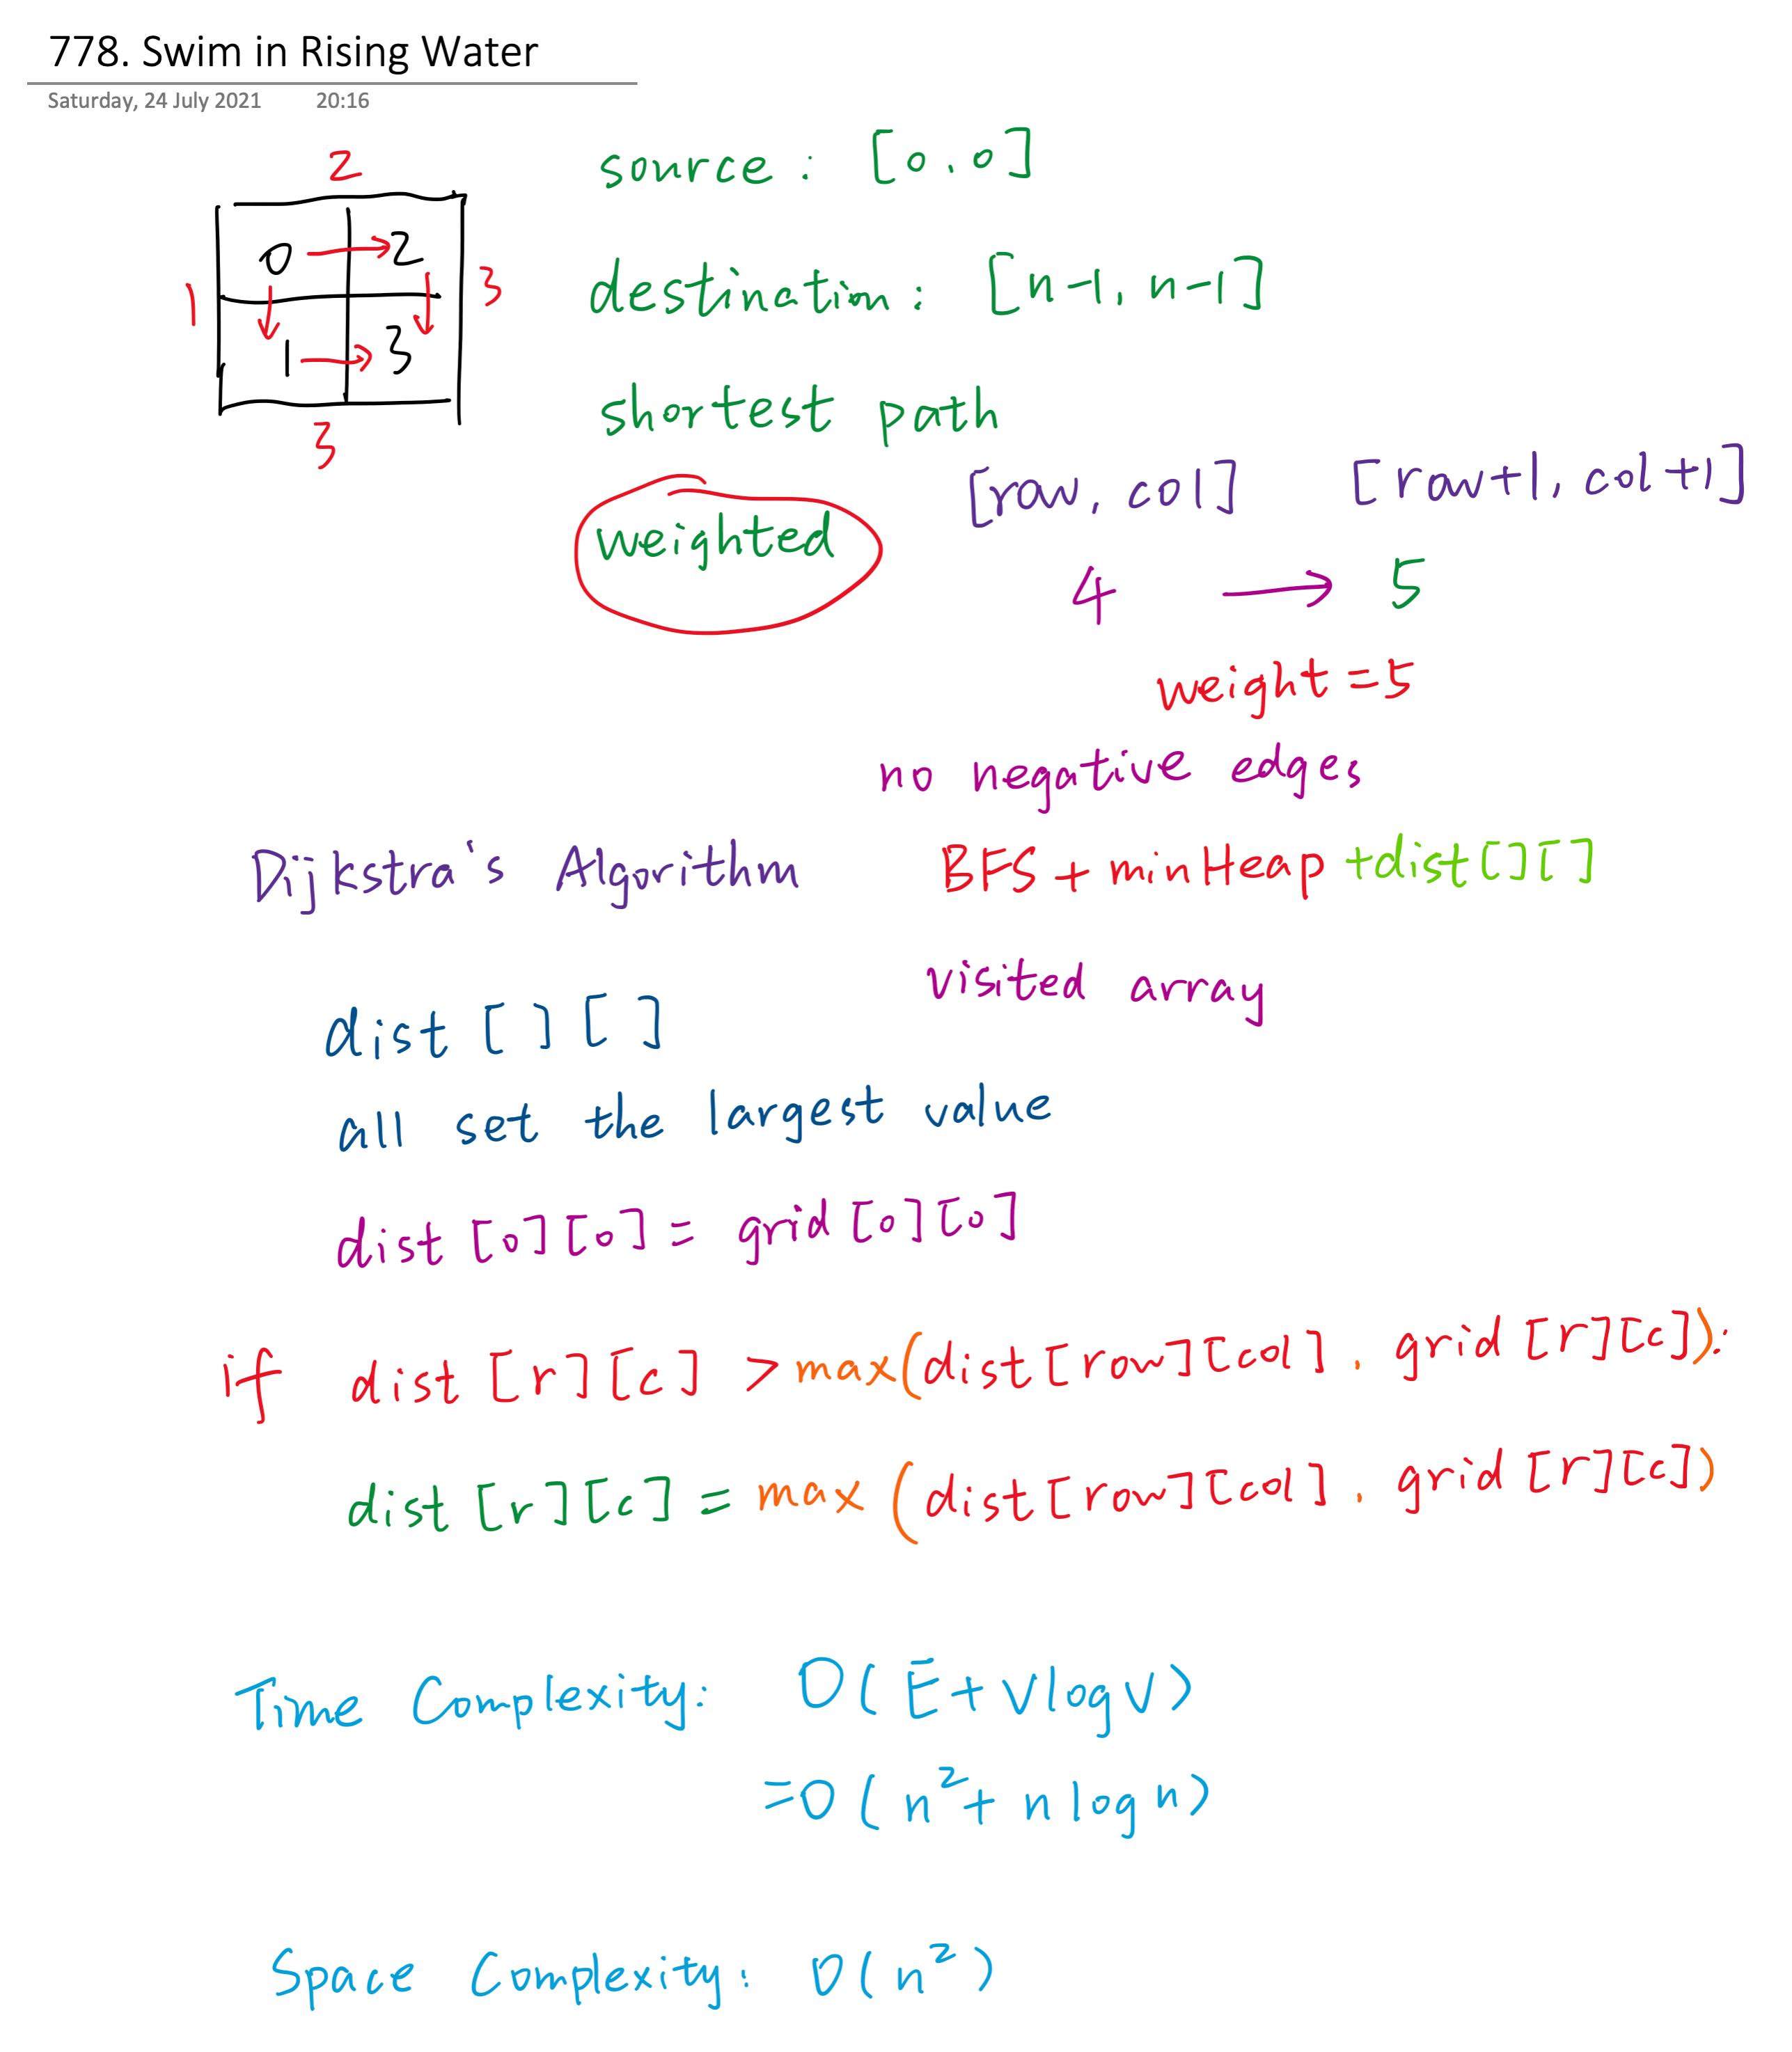 778. Swim in Rising Water
Saturday, 24 July 2021 20:16
2
0 2
1 3
1 3
3
source: [0,0]
destination: [n-1, n-1]
shortest path
weighted
[row, col] [row+1, col+1]
4 → 5
weight = 5
no negative edges
Dijkstra's Algorithm BFS + minHeap + dist[][]
visited array
dist [ ] [ ]
all set the largest value
dist [0][0] = grid [0][0]
if dist [r][c] > max(dist[row][col], grid [r][c]):
dist [r][c] = max (dist[row][col], grid [r][c])
Time Complexity: O(E+VlogV)
=O(n²+ nlogn)
Space Complexity: O(n²)